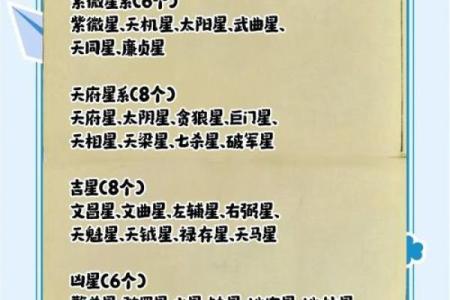 紫微星系(6个)
紫微星、天机星、太阳星、武曲星、
天同星、廉贞星
天府星系(8个)
天府星、太阴星、贪狼星、巨门星、
天相星、天梁星、七杀星、破军星
吉星(8个)
文昌星、文曲星、左辅星、右弼星、
天魁星、天钺星、禄存星、天马星
凶星(6个)